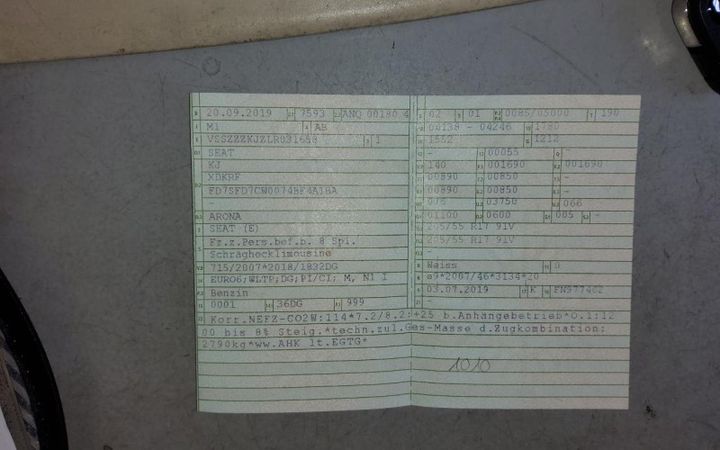 20.09.2019 7593 ANQ 00180 4
M1 AB
SEAT
KJ
XDKRF
FD7SFD7CW0074BF4A1BA
-
ARONA
SEAT (E)
Fz.z.Pers.bef.b. 8 Spl.
Schräghecklimousine
715/2007*2018/1832DG
EURO6;WLTP;DG;PI/CI; M, N1 I
Benzin
0001 36DG 999
02 01 0085/05000 190
04246
1552 1212
- 00055 -
140 001690 001690
00890 00850 -
00890 00850 -
03750 066
01100 0600 005 -
205/55 R17 91V
205/55 R17 91V
-
Weiss 0
e9*2007/46*3134*20
03.07.2019 K
Korr.NEFZ-CO2W:114*7.2/8.2:+25 b.Anhängebetrieb*O.1:12
00 bis 8% Steig.*techn.zul.Ges-Masse d.Zugkombination:
2790kg*ww.AHK lt.EGTG*
1010